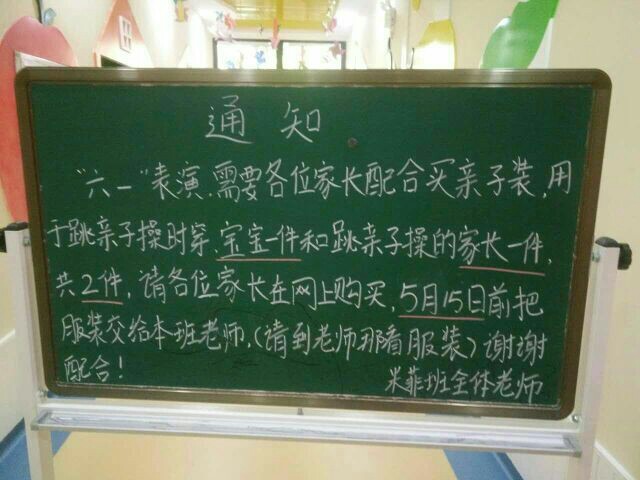 通知
"六一"表演,需要各位家长配合买亲子装,用
于跳亲子操时穿,宝宝一件和跳亲子操的家长一件,
共2件,请各位家长在网上购买,5月15日前把
服装交给本班老师,(请到老师那看服装)谢谢
配合!
米菲班全体老师